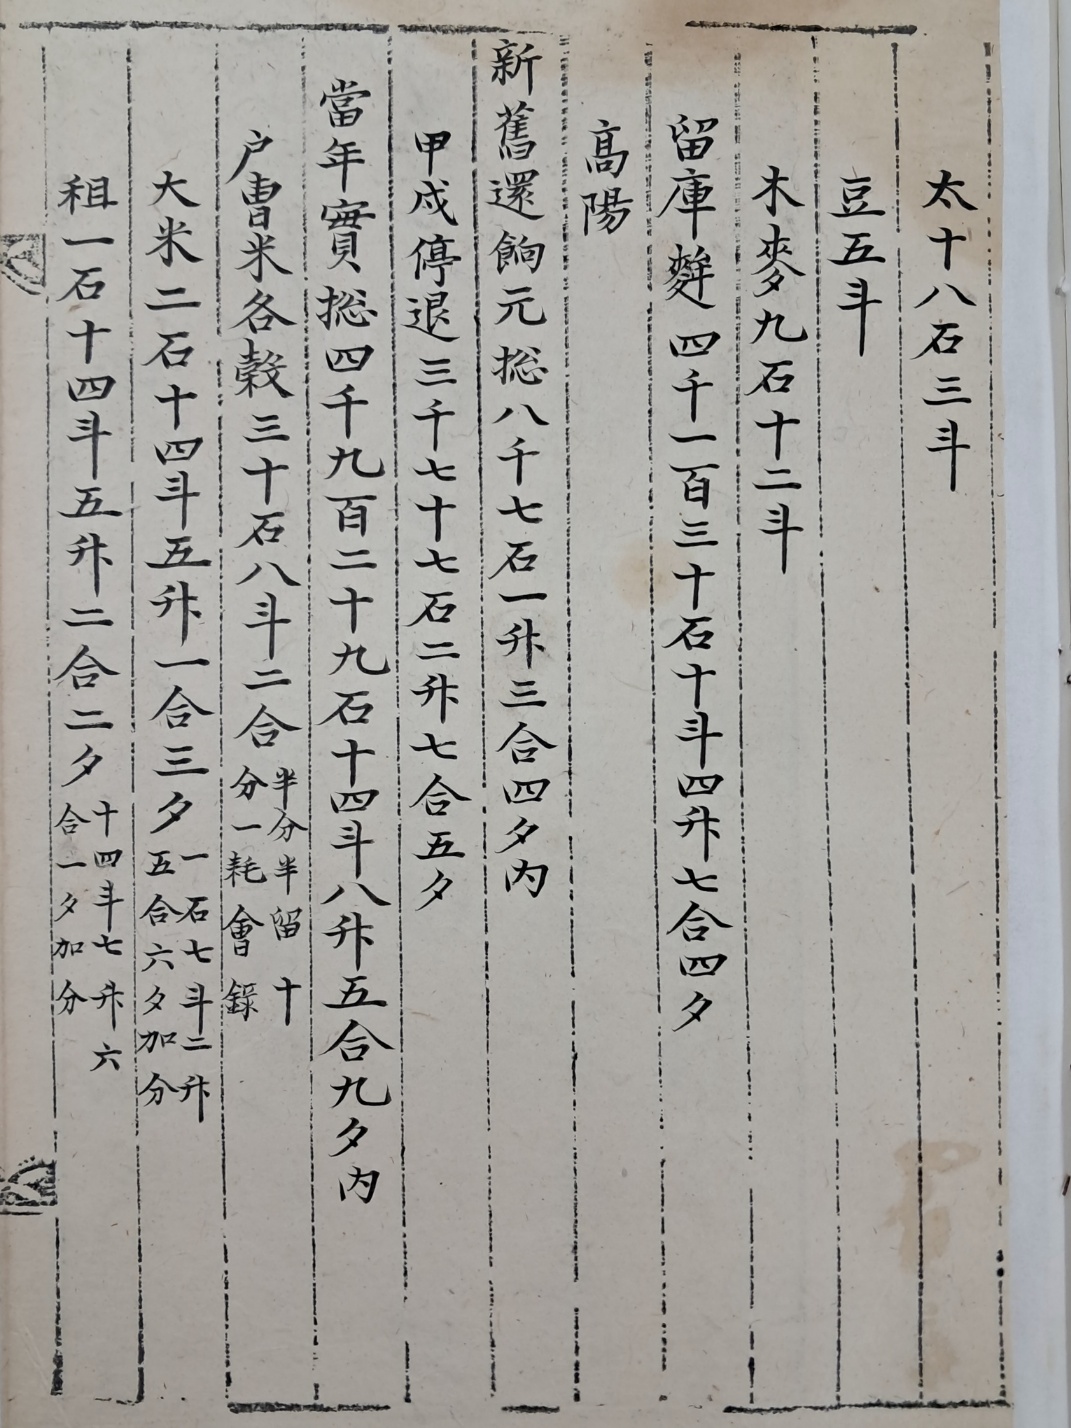 太十八石三斗
豆五斗
木麥九石十二斗
留庫䴺四千一百三十石十斗四升七合四夕
高陽
新舊還餉元捴八千七石一升三合四夕內
甲戌停退三千七十七石二升七合五夕
當年實捴四千九百二十九石十四斗八升五合九夕內
户曺米各糓三十石八斗二合 半分半留十
分一耗會錄
大米二石十四斗五升一合三夕 一石七斗二升
五合六夕加分
租一石十四斗五升二合二夕 十四斗七升六
合一夕加分